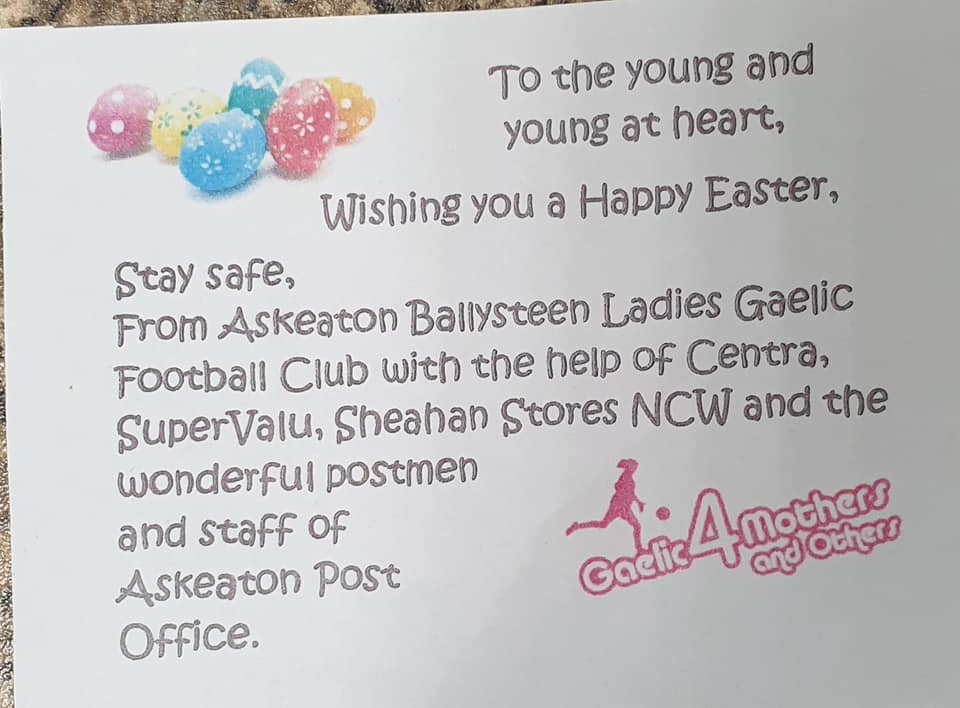 To the young and
young at heart,
Wishing you a Happy Easter,
Stay safe,
From Askeaton Ballysteen Ladies Gaelic
Football Club with the help of Centra,
SuperValu, Sheahan Stores NCW and the
wonderful postmen
and staff of
Askeaton Post
Office.
Gaelic 4 Mothers
and Others